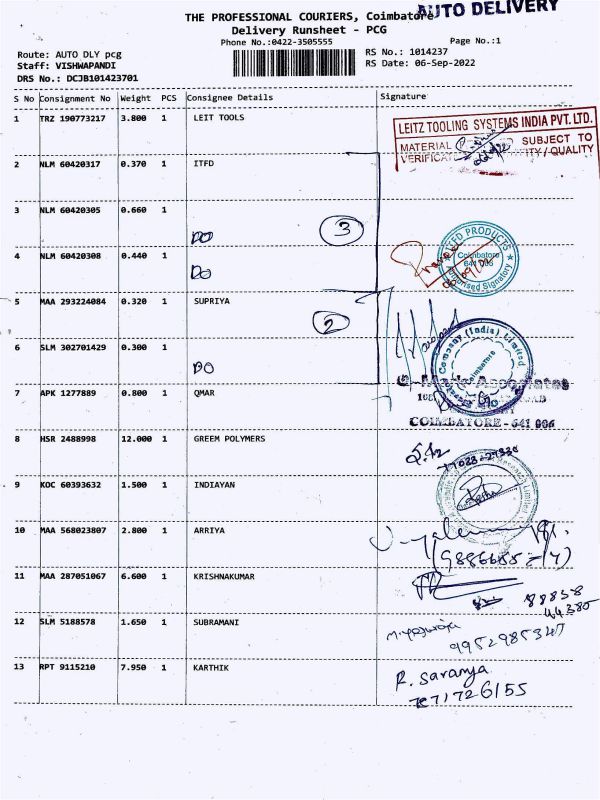 AUTO DELIVERY
THE PROFESSIONAL COURIERS, Coimbatore
Delivery Runsheet - PCG
Phone No.:0422-3505555
Page No.:1
Route: AUTO DLY pcg
RS No.: 1014237
Staff: VISHWAPANDI
RS Date: 06-Sep-2022
DRS No.: DCJB101423701
S No Consignment No Weight PCS Consignee Details Signature
1 TRZ 190773217 3.800 1 LEIT TOOLS
LEITZ TOOLING SYSTEMS INDIA PVT. LTD.
MATERIAL SUBJECT TO
VERIFICAT ITY/QUALITY
2 NLM 60420317 0.370 1 ITFD
3 NLM 60420305 0.660 1
DO
3
4 NLM 60420308 0.440 1
DO
PRODUCTS
Coimbatore
Authorised Signatory
5 MAA 293224084 0.320 1 SUPRIYA
2
6 SLM 302701429 0.300 1
DO
Company (India) Limited
Coimbatore
7 APK 1277889 0.800 1 QMAR
Associates
108
COIMBATORE - 641 006
8 HSR 2488998 12.000 1 GREEM POLYMERS
9 KOC 60393632 1.500 1 INDIAYAN
Research Limited
10 MAA 568023807 2.800 1 ARRIYA
11 MAA 287051067 6.600 1 KRISHNAKUMAR
88838
44380
12 SLM 5188578 1.650 1 SUBRAMANI
9952985347
13 RPT 9115210 7.950 1 KARTHIK
R. Saranya
7871726155